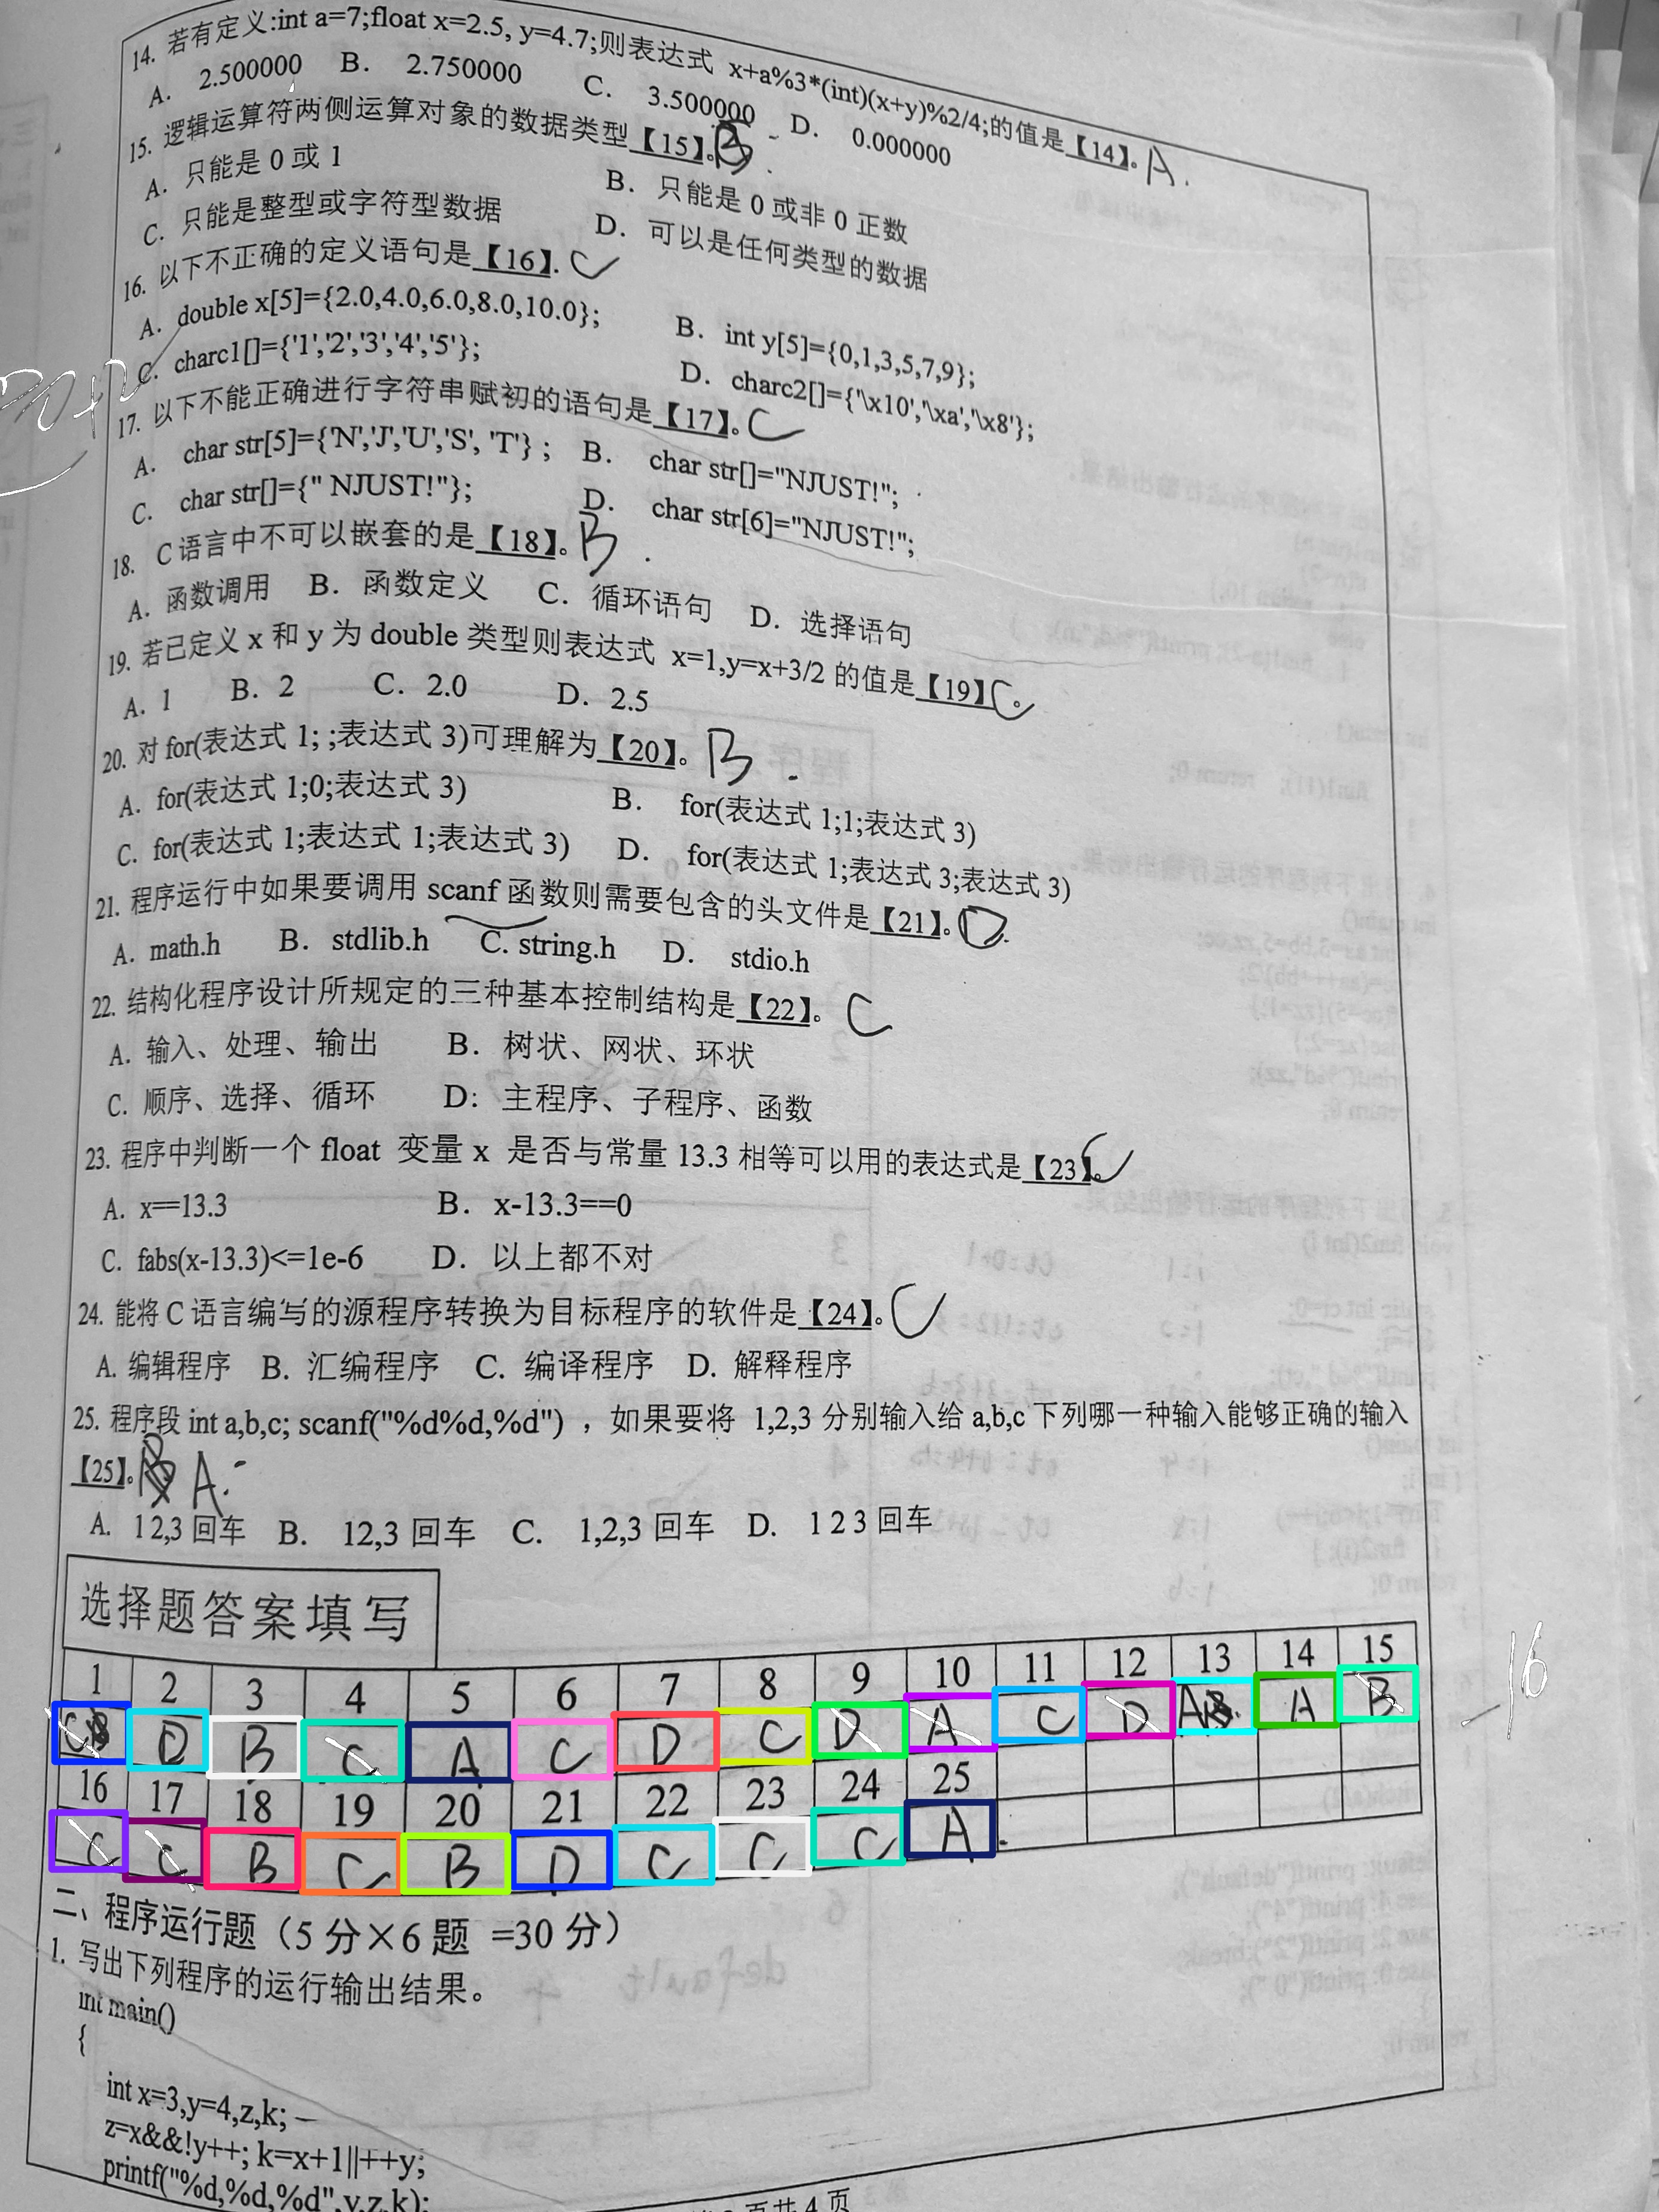 14. 若有定义:int a=7;float x=2.5, y=4.7;则表达式 x+a%3*(int)(x+y)%2/4;的值是【14】。A.
A. 2.500000 B. 2.750000 C. 3.500000 D. 0.000000
15. 逻辑运算符两侧运算对象的数据类型【15】。B
A. 只能是 0 或 1 B. 只能是 0 或非 0 正数
C. 只能是整型或字符型数据 D. 可以是任何类型的数据
16. 以下不正确的定义语句是【16】. C
A. double x[5]={2.0,4.0,6.0,8.0,10.0}; B. int y[5]={0,1,3,5,7,9};
C. charc1[]={'1','2','3','4','5'}; D. charc2[]={'\x10','\xa','\x8'};
17. 以下不能正确进行字符串赋初的语句是【17】。C
A. char str[5]={'N','J','U','S', 'T'} ; B. char str[]="NJUST!";
C. char str[]={" NJUST!"}; D. char str[6]="NJUST!";
18. C 语言中不可以嵌套的是【18】。B
A. 函数调用 B. 函数定义 C. 循环语句 D. 选择语句
19. 若已定义 x 和 y 为 double 类型则表达式 x=1,y=x+3/2 的值是【19】C。
A. 1 B. 2 C. 2.0 D. 2.5
20. 对 for(表达式 1; ;表达式 3)可理解为【20】。B
A. for(表达式 1;0;表达式 3) B. for(表达式 1;1;表达式 3)
C. for(表达式 1;表达式 1;表达式 3) D. for(表达式 1;表达式 3;表达式 3)
21. 程序运行中如果要调用 scanf 函数则需要包含的头文件是【21】。D.
A. math.h B. stdlib.h C. string.h D. stdio.h
22. 结构化程序设计所规定的三种基本控制结构是【22】。C
A. 输入、处理、输出 B. 树状、网状、环状
C. 顺序、选择、循环 D: 主程序、子程序、函数
23. 程序中判断一个 float 变量 x 是否与常量 13.3 相等可以用的表达式是【23】。C
A. x==13.3 B. x-13.3==0
C. fabs(x-13.3)<=1e-6 D. 以上都不对
24. 能将 C 语言编写的源程序转换为目标程序的软件是【24】。C
A. 编辑程序 B. 汇编程序 C. 编译程序 D. 解释程序
25. 程序段 int a,b,c; scanf("%d%d,%d") ，如果要将 1,2,3 分别输入给 a,b,c 下列哪一种输入能够正确的输入
【25】。A.
A. 1 2,3 回车 B. 12,3 回车 C. 1,2,3 回车 D. 1 2 3 回车
选择题答案填写
1 2 3 4 5 6 7 8 9 10 11 12 13 14 15
C D B C A C D C D A C D A A B
-16
16 17 18 19 20 21 22 23 24 25
C C B C B D C C C A
二、程序运行题（5 分×6 题 =30 分）
1. 写出下列程序的运行输出结果。
int main()
{
int x=3,y=4,z,k;
z=x&&!y++; k=x+1||++y;
printf("%d,%d,%d",y,z,k);
页共 4 页